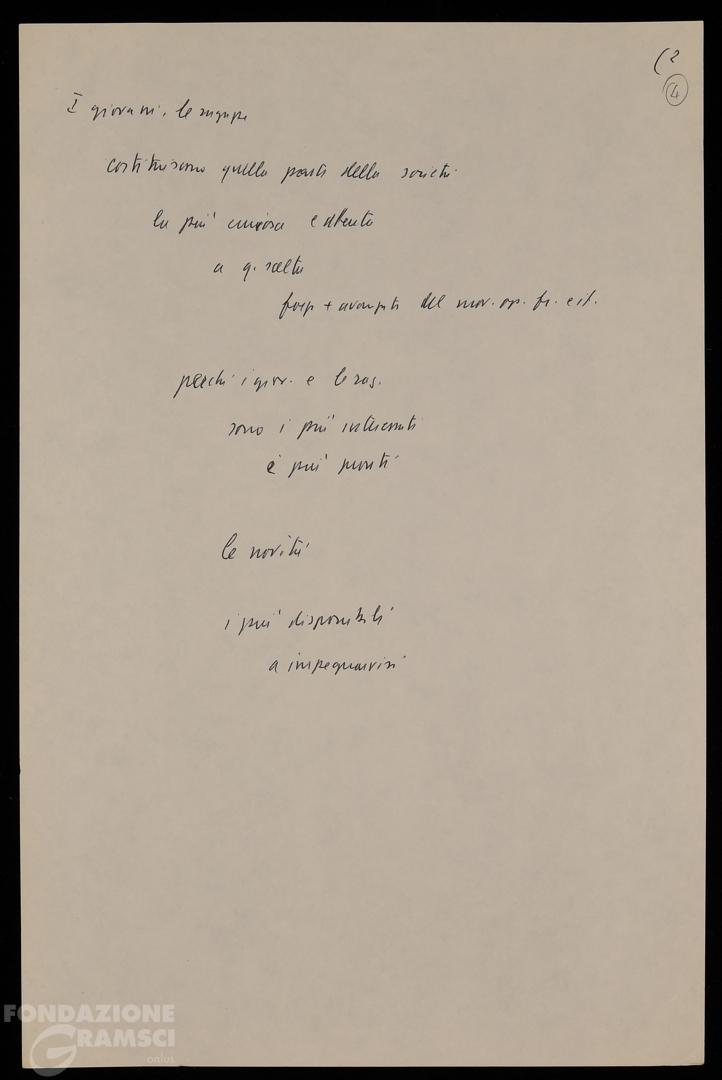 (2
4
I giovani, le ragazze
costituiscono quella parte della società
la più curiosa e attenta
a q. scelta
forze + avanzate del mov. op. fr. e it.
perché i giov. e le rag.
sono i più interessati
e più pronti
le novità
i più disponibili
a impegnarvisi
FONDAZIONE
GRAMSCI
onlus